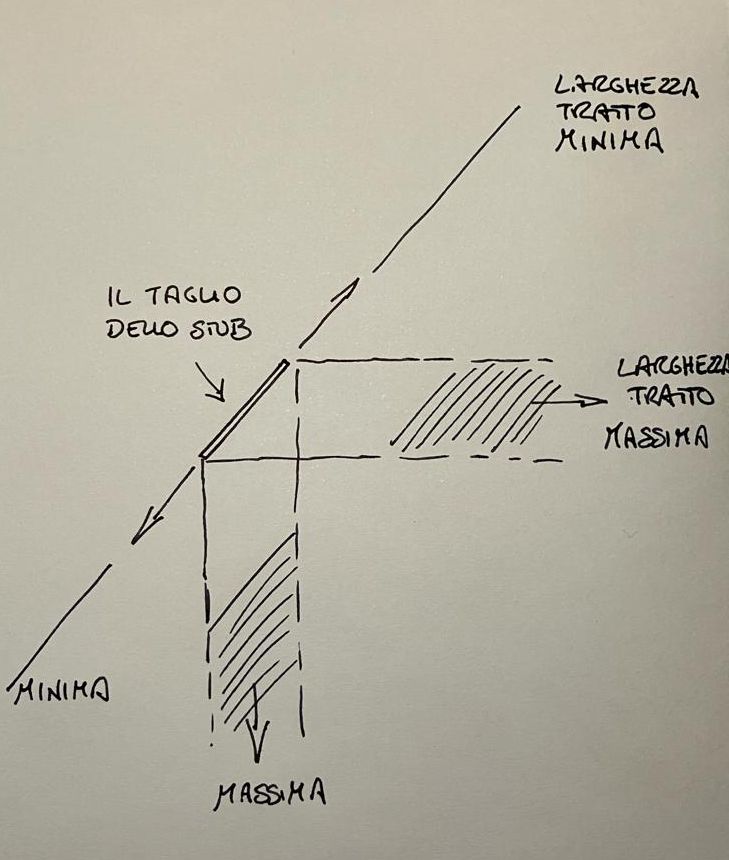 LARGHEZZA
TRATTO
MINIMA
IL TAGLIO
DELLO STUB
LARGHEZZA
TRATTO
MASSIMA
MINIMA
MASSIMA